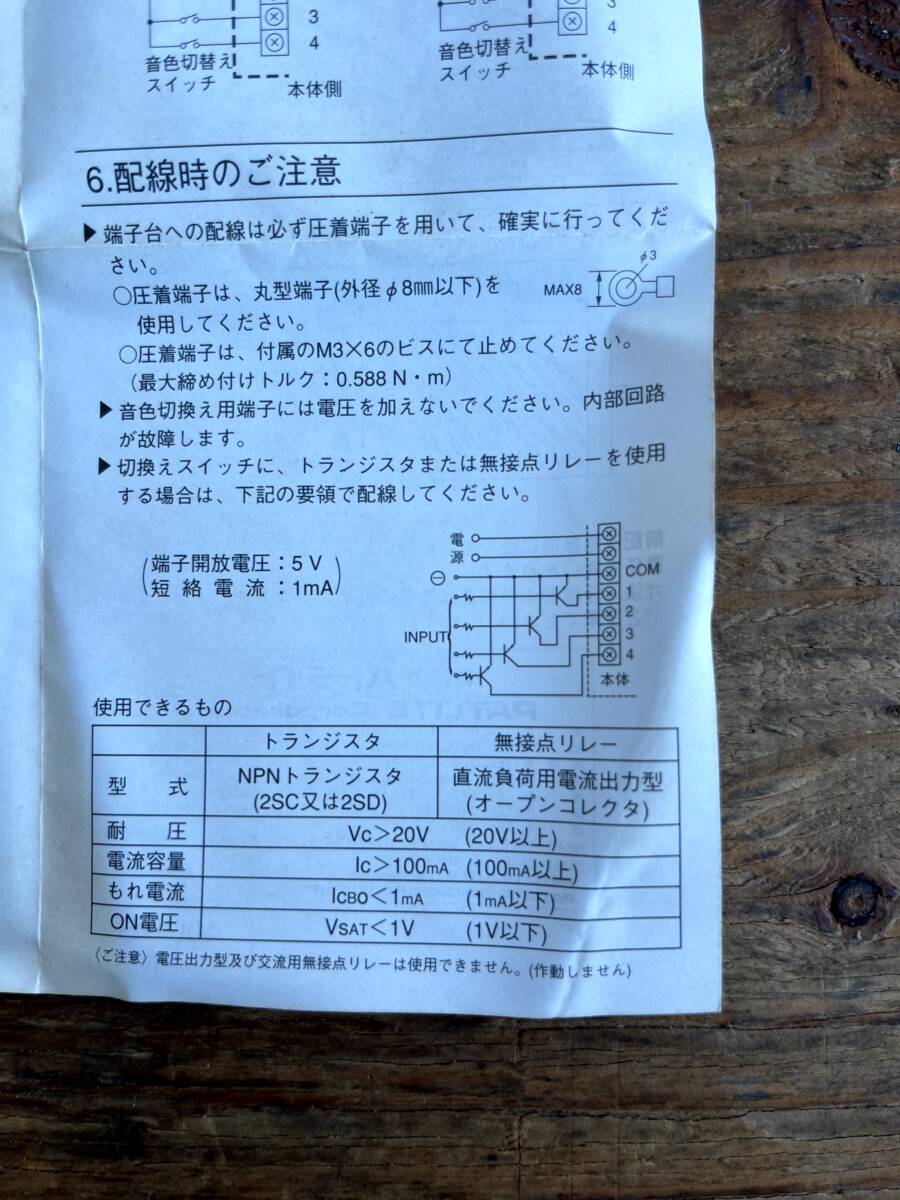 3
4
音色切替え
スイッチ
本体側
3
4
音色切替え
スイッチ
本体側
6.配線時のご注意
▶端子台への配線は必ず圧着端子を用いて、確実に行ってくだ
さい。
○圧着端子は、丸型端子(外径φ8mm以下)を
使用してください。
φ3
MAX8
○圧着端子は、付属のM3×6のビスにて止めてください。
(最大締め付けトルク:0.588 N・m)
▶音色切換え用端子には電圧を加えないでください。内部回路
が故障します。
▶切換えスイッチに、トランジスタまたは無接点リレーを使用
する場合は、下記の要領で配線してください。
端子開放電圧:5 V
短絡電流:1mA
電
源
⊖
COM
1
2
3
4
INPUT
本体
使用できるもの
トランジスタ 無接点リレー
型式 NPNトランジスタ (2SC又は2SD) 直流負荷用電流出力型 (オープンコレクタ)
耐圧 VC>20V (20V以上)
電流容量 IC>100mA (100mA以上)
もれ電流 ICBO<1mA (1mA以下)
ON電圧 VSAT<1V (1V以下)
〈ご注意〉電圧出力型及び交流用無接点リレーは使用できません。(作動しません)